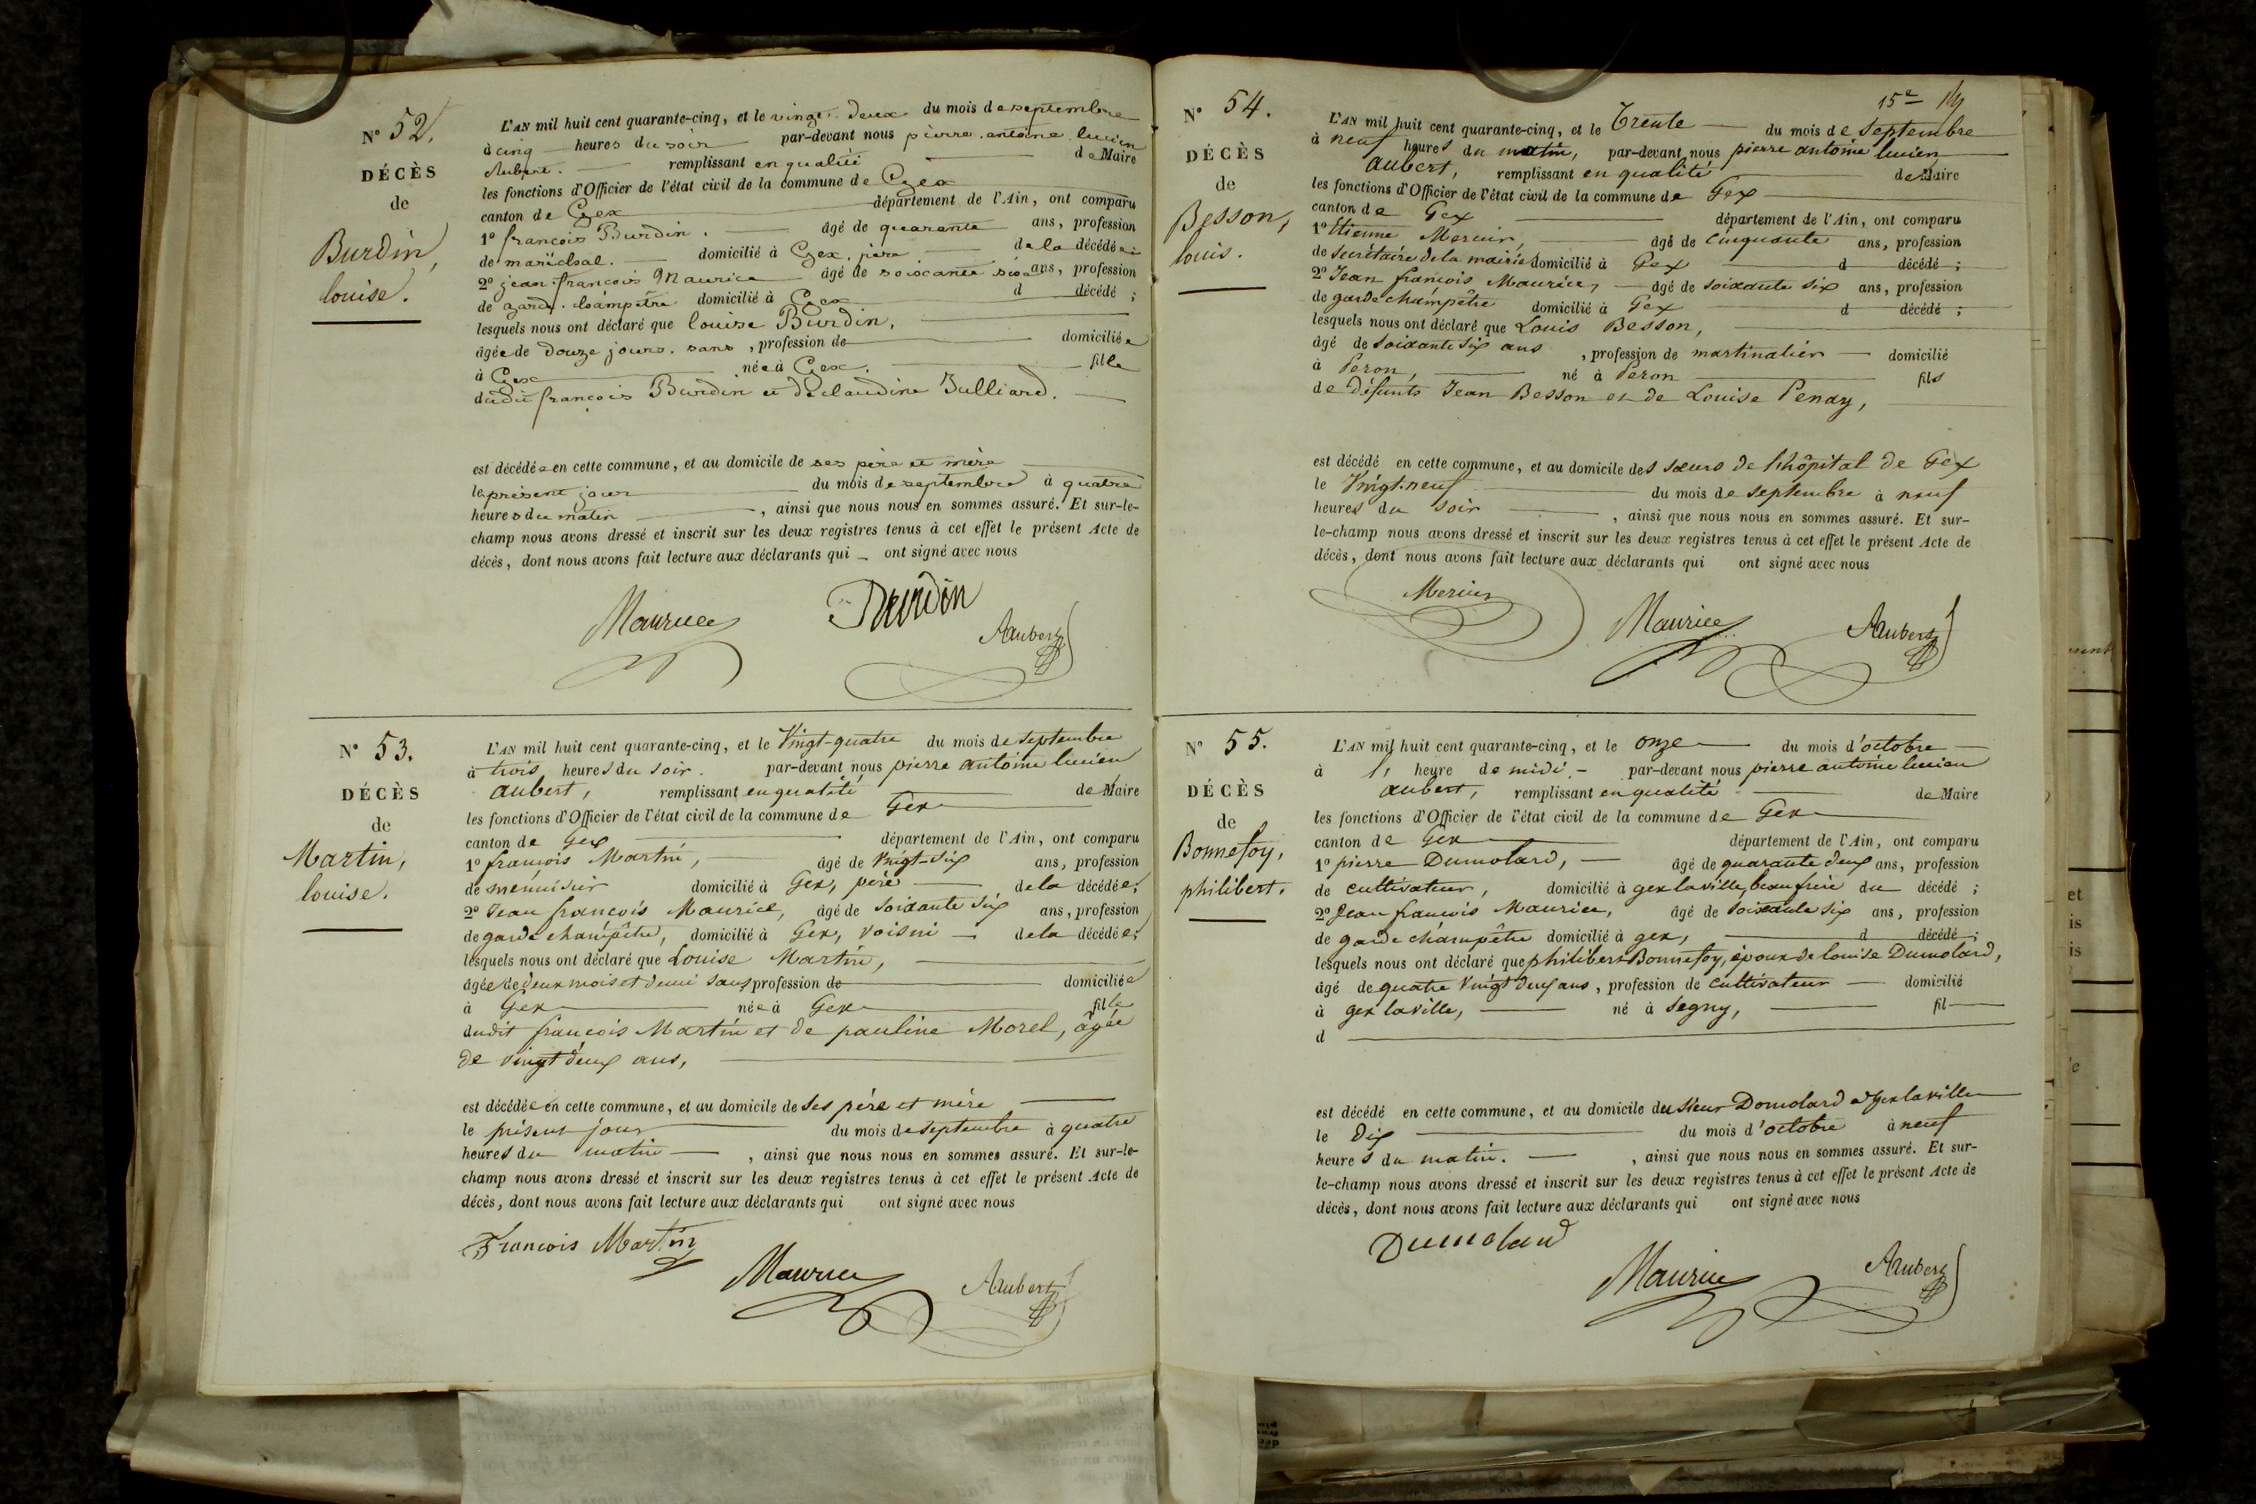 N° 52.
DÉCÈS
de
Burdin,
louise.
L'AN mil huit cent quarante-cinq, et le vingt deux du mois de septembre
à cinq heures du soir par-devant nous pierre antoine lucien
Aubert. remplissant en qualité de Maire
les fonctions d'Officier de l'état civil de la commune de Gex
canton de Gex département de l'Ain, ont comparu
1° françois Burdin. âgé de quarante ans, profession
de maréchal. domicilié à Gex. père de la décédée;
2° jean françois Maurice âgé de soixante six ans, profession
de garde. champêtre domicilié à Gex d décédé ;
lesquels nous ont déclaré que louise Burdin,
âgée de douze jours. sans , profession de domiciliée
à Gex née à Gex. fille
dudit françois Burdin et de claudine Julliard.
est décédée en cette commune, et au domicile de ses père et mère
le présent jour du mois de septembre à quatre
heures du matin , ainsi que nous nous en sommes assuré. Et sur-le-
champ nous avons dressé et inscrit sur les deux registres tenus à cet effet le présent Acte de
décès, dont nous avons fait lecture aux déclarants qui ont signé avec nous
Maurice Burdin Aubert
N° 53.
DÉCÈS
de
Martin,
louise.
L'AN mil huit cent quarante-cinq, et le Vingt-quatre du mois de septembre
à trois heures du soir. par-devant nous pierre antoine lucien
aubert, remplissant en qualité de Maire
les fonctions d'Officier de l'état civil de la commune de Gex
canton de Gex département de l'Ain, ont comparu
1° françois Martin, âgé de Vingt-six ans, profession
de menuisier domicilié à Gex, père de la décédée;
2° Jean françois Maurice, âgé de soixante six ans, profession
de garde champêtre, domicilié à Gex, voisin de la décédée;
lesquels nous ont déclaré que Louise Martin,
âgée de deux mois et demi sans profession de domiciliée
à Gex née à Gex fille
dudit françois Martin et de pauline Morel, âgée
de vingt deux ans,
est décédée en cette commune, et au domicile de ses père et mère
le présent jour du mois de septembre à quatre
heures du matin , ainsi que nous nous en sommes assuré. Et sur-le-
champ nous avons dressé et inscrit sur les deux registres tenus à cet effet le présent Acte de
décès, dont nous avons fait lecture aux déclarants qui ont signé avec nous
François Martin Maurice Aubert
15e
N° 54.
DÉCÈS
de
Besson,
louis.
L'AN mil huit cent quarante-cinq, et le Trente du mois de septembre
à neuf heures du matin, par-devant nous pierre antoine lucien
aubert, remplissant en qualité de Maire
les fonctions d'Officier de l'état civil de la commune de Gex
canton de Gex département de l'Ain, ont comparu
1° Etienne Mercier, âgé de cinquante ans, profession
de secrétaire de la mairie domicilié à Gex d décédé ;
2° Jean françois Maurice, âgé de soixante six ans, profession
de garde champêtre domicilié à Gex d décédé ;
lesquels nous ont déclaré que Louis Besson,
âgé de soixante six ans , profession de martinalier domicilié
à Peron, né à Peron fils
de défunts Jean Besson et de Louise Penay,
est décédé en cette commune, et au domicile des sœurs de l'hôpital de Gex
le Vingt-neuf du mois de septembre à neuf
heures du soir , ainsi que nous nous en sommes assuré. Et sur-
le-champ nous avons dressé et inscrit sur les deux registres tenus à cet effet le présent Acte de
décès, dont nous avons fait lecture aux déclarants qui ont signé avec nous
Mercier Maurice Aubert
N° 55.
DÉCÈS
de
Bonnefoy,
philibert.
L'AN mil huit cent quarante-cinq, et le onze du mois d'octobre
à l' heure de midi par-devant nous pierre antoine lucien
aubert, remplissant en qualité de Maire
les fonctions d'Officier de l'état civil de la commune de Gex
canton de Gex département de l'Ain, ont comparu
1° pierre Dumolard, âgé de quarante deux ans, profession
de cultivateur, domicilié à gex la ville, beau frère du décédé ;
2° Jean françois Maurice, âgé de soixante six ans, profession
de garde champêtre domicilié à gex, d décédé ;
lesquels nous ont déclaré que philibert Bonnefoy, époux de louise Dumolard,
âgé de quatre vingt deux ans, profession de cultivateur domicilié
à gex la ville, né à Segny, fil
d
est décédé en cette commune, et au domicile du sieur Domolard à gex la ville
le Dix du mois d'octobre à neuf
heures du matin. , ainsi que nous nous en sommes assuré. Et sur-
le-champ nous avons dressé et inscrit sur les deux registres tenus à cet effet le présent Acte de
décès, dont nous avons fait lecture aux déclarants qui ont signé avec nous
Dumolard Maurice Aubert
et
is
is